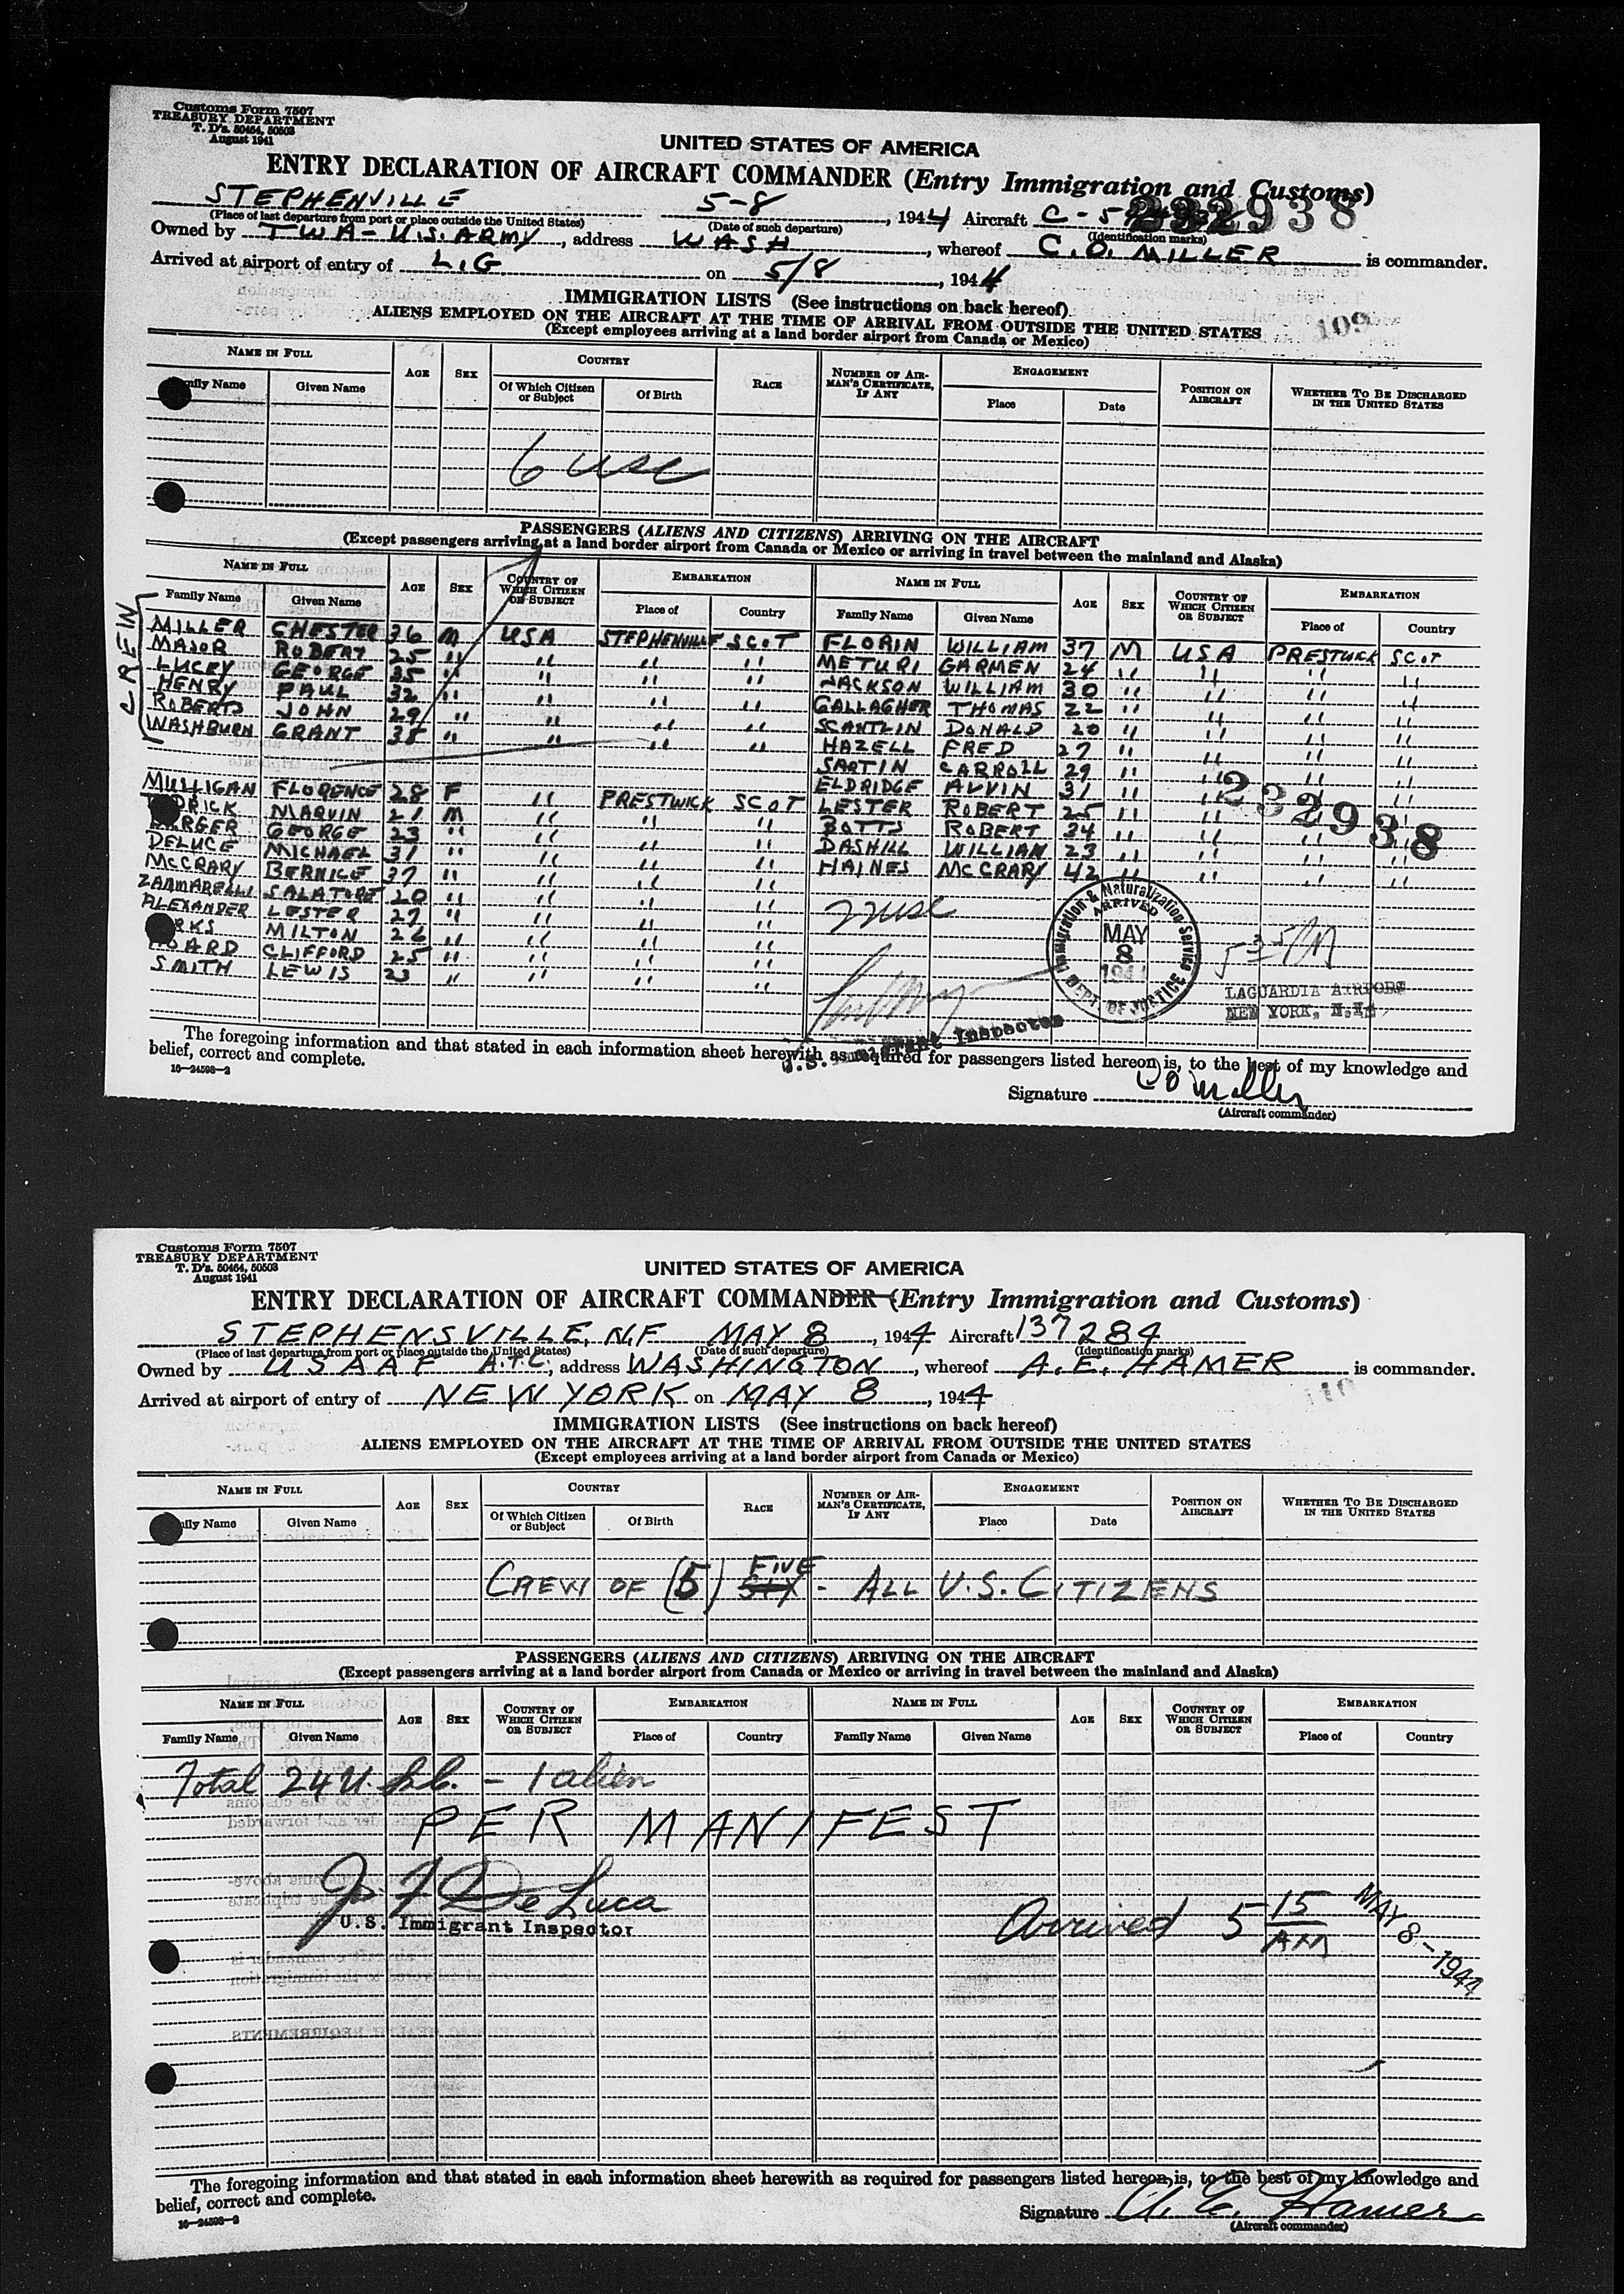 Customs Form 7507
TREASURY DEPARTMENT
T. D's. 50464, 50503
August 1941
UNITED STATES OF AMERICA
ENTRY DECLARATION OF AIRCRAFT COMMANDER (Entry Immigration and Customs)
STEPHENVILLE 5-8, 1944 Aircraft C-5 232938
(Place of last departure from port or place outside the United States) (Date of such departure) (Identification marks)
Owned by TWA - U.S. ARMY, address WASH, whereof C.O. MILLER is commander.
Arrived at airport of entry of L.G on 5/8, 1944
IMMIGRATION LISTS (See instructions on back hereof)
109
ALIENS EMPLOYED ON THE AIRCRAFT AT THE TIME OF ARRIVAL FROM OUTSIDE THE UNITED STATES
(Except employees arriving at a land border airport from Canada or Mexico)
NAME IN FULL AGE SEX COUNTRY RACE NUMBER OF AIRMAN'S CERTIFICATE, IF ANY ENGAGEMENT POSITION ON AIRCRAFT WHETHER TO BE DISCHARGED IN THE UNITED STATES
Family Name Given Name Of Which Citizen or Subject Of Birth Place Date
6 usc
PASSENGERS (ALIENS AND CITIZENS) ARRIVING ON THE AIRCRAFT
(Except passengers arriving at a land border airport from Canada or Mexico or arriving in travel between the mainland and Alaska)
NAME IN FULL AGE SEX COUNTRY OF WHICH CITIZEN OR SUBJECT EMBARKATION NAME IN FULL AGE SEX COUNTRY OF WHICH CITIZEN OR SUBJECT EMBARKATION
Family Name Given Name Place of Country Family Name Given Name Place of Country
MILLER CHESTER 36 M USA STEPHENVILLE SCOT FLORIN WILLIAM 37 M USA PRESTWICK SCOT
MAJOR ROBERT 25 " " " " METURI GARMEN 24 " " " "
LUCEY GEORGE 35 " " " " JACKSON WILLIAM 30 " " " "
HENRY PAUL 32 " " " " GALLAGHER THOMAS 22 " " " "
ROBERTS JOHN 29 " " " " SCANTLIN DONALD 20 " " " "
WASHBURN GRANT 38 " " " " HAZELL FRED 27 " " " "
SARTIN CARROLL 29 " " " "
MULLIGAN FLORENCE 28 F " PRESTWICK SCOT ELDRIDGE ALVIN 31 " " " "
DRICK MARVIN 21 M " " " LESTER ROBERT 25 " " " "
RGER GEORGE 23 " " " " BOTTS ROBERT 34 " " " "
DELUCE MICHAEL 31 " " " " DASHILL WILLIAN 23 " " " "
McCRARY BERNICE 37 " " " " HAINES McCRARY 42 " " " "
ZAMMARELLI SALATORE 20 " " " "
ALEXANDER LESTER 27 " " " "
RKS MILTON 26 " " " "
OARD CLIFFORD 25 " " " "
SMITH LEWIS 23 " " " "
232938
Immigration & Naturalization Service
ARRIVED
MAY
8
1944
DEPT. OF JUSTICE
LAGUARDIA AIRPORT
NEW YORK, N.Y.
U.S. Immigrant Inspector
The foregoing information and that stated in each information sheet herewith as required for passengers listed hereon is, to the best of my knowledge and
belief, correct and complete.
16—24598-2
Signature C O Miller
(Aircraft commander)
Customs Form 7507
TREASURY DEPARTMENT
T. D's. 50464, 50503
August 1941
UNITED STATES OF AMERICA
ENTRY DECLARATION OF AIRCRAFT COMMANDER (Entry Immigration and Customs)
STEPHENSVILLE, N.F MAY 8, 1944 Aircraft 137284
(Place of last departure from port or place outside the United States) (Date of such departure) (Identification marks)
Owned by USAAF A.T.C., address WASHINGTON, whereof A.E. HAMER is commander.
Arrived at airport of entry of NEW YORK on MAY 8, 1944
110
IMMIGRATION LISTS (See instructions on back hereof)
ALIENS EMPLOYED ON THE AIRCRAFT AT THE TIME OF ARRIVAL FROM OUTSIDE THE UNITED STATES
(Except employees arriving at a land border airport from Canada or Mexico)
NAME IN FULL AGE SEX COUNTRY RACE NUMBER OF AIRMAN'S CERTIFICATE, IF ANY ENGAGEMENT POSITION ON AIRCRAFT WHETHER TO BE DISCHARGED IN THE UNITED STATES
Family Name Given Name Of Which Citizen or Subject Of Birth Place Date
CREW OF (5) SIX FIVE - ALL U.S. CITIZENS
PASSENGERS (ALIENS AND CITIZENS) ARRIVING ON THE AIRCRAFT
(Except passengers arriving at a land border airport from Canada or Mexico or arriving in travel between the mainland and Alaska)
NAME IN FULL AGE SEX COUNTRY OF WHICH CITIZEN OR SUBJECT EMBARKATION NAME IN FULL AGE SEX COUNTRY OF WHICH CITIZEN OR SUBJECT EMBARKATION
Family Name Given Name Place of Country Family Name Given Name Place of Country
Total 24 U.S.C. - 1 alien
PER MANIFEST
J. F. De Luca
U.S. Immigrant Inspector
Arrived 5 15 AM MAY 8-1944
The foregoing information and that stated in each information sheet herewith as required for passengers listed hereon is, to the best of my knowledge and
belief, correct and complete.
16—24598-2
Signature A. E. Hamer
(Aircraft commander)